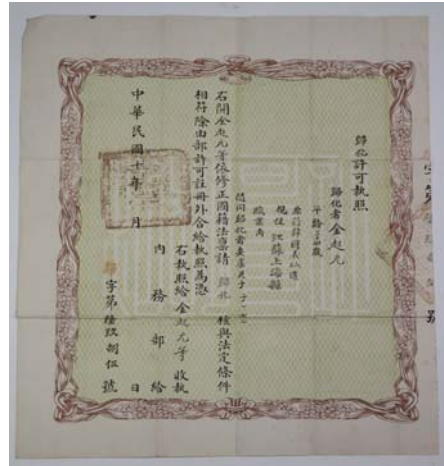 歸化許可執照
歸化者金起元
年齡
原籍韓國義州道
現住江蘇上海縣
職業商
隨同歸化者妻 子
右開金起元等依修正國籍法稟請歸化核與法定條件
相符除由部許可註冊外合給執照為憑
右執照給金起元等收執
內務部給
中華民國十年 月 日
歸字第 號